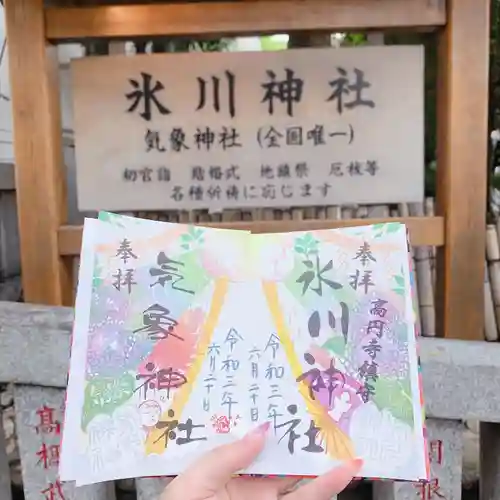 氷川神社
気象神社(全国唯一)
初宮詣 結婚式 地鎮祭 厄祓等
各種祈祷に応じます
奉拝
氷川神社
高円寺鎮守
令和三年
六月二十日
奉拝
気象神社
令和三年
六月二十日
高